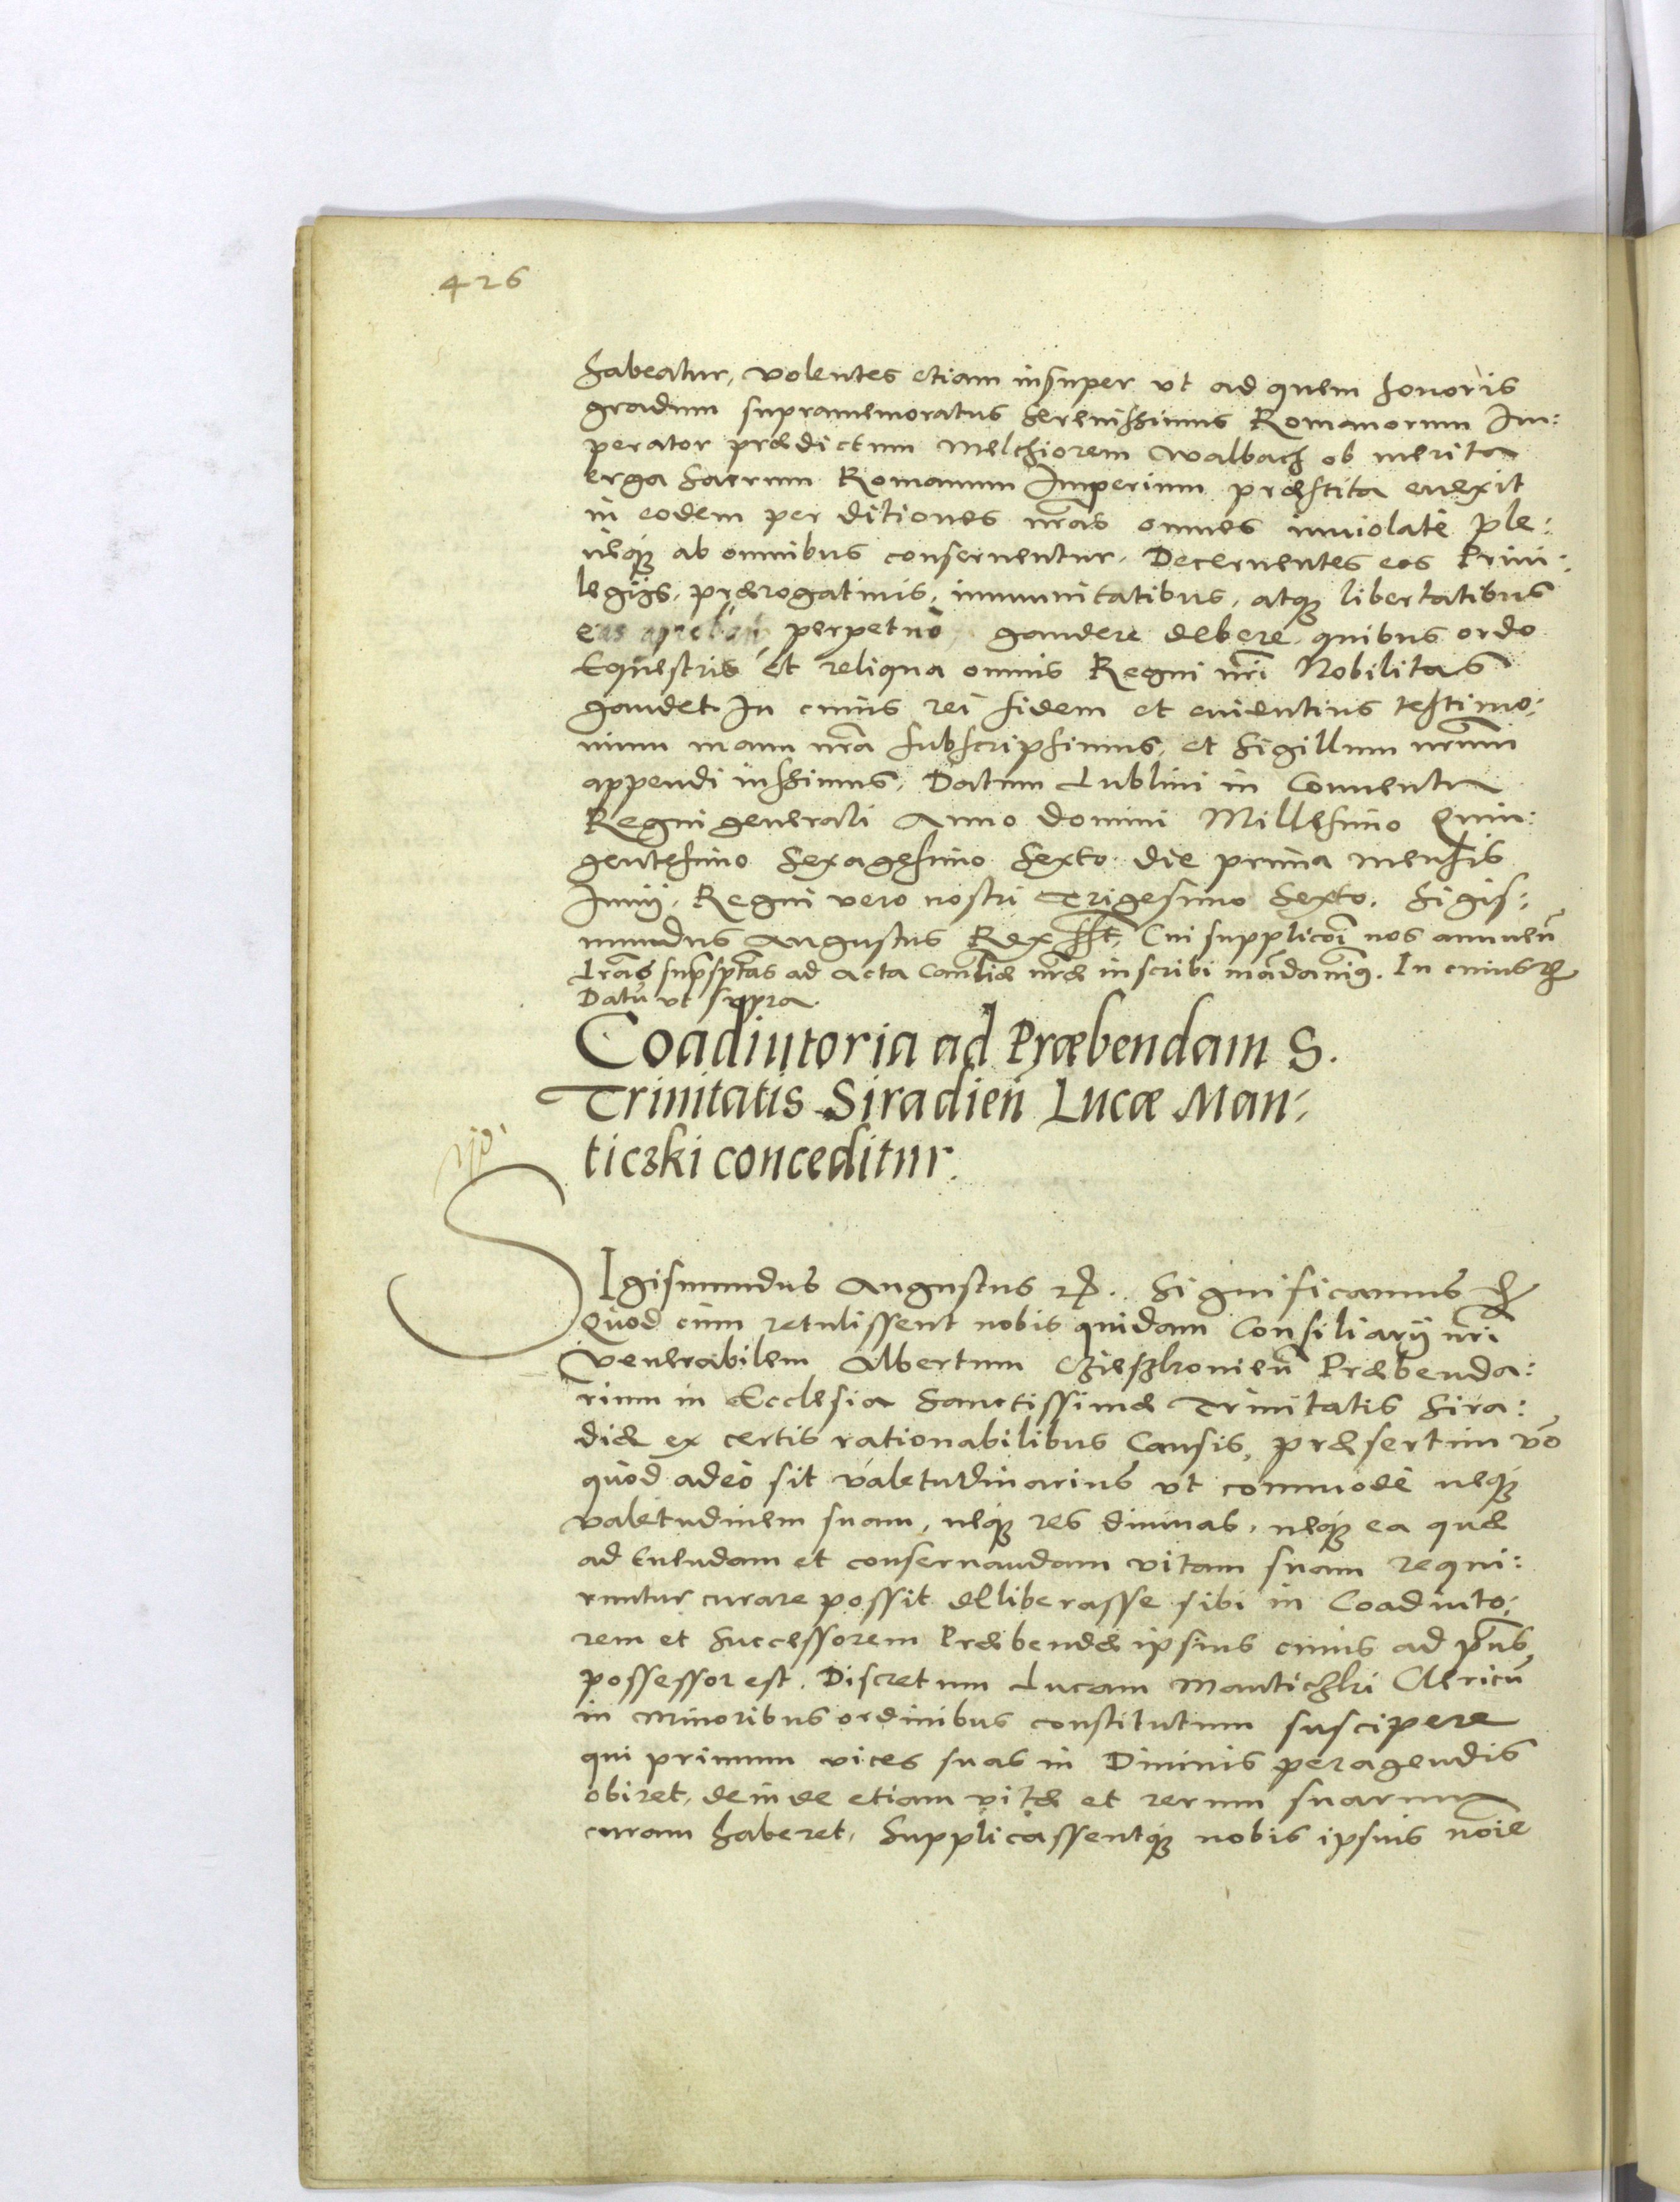 426
habeatur, volentes etiam insuper vt ad quem honoris
gradum supramemoratus Serenissimus Romanorum Im:
perator prædictum Melchiorem Walbach ob merita
erga Sacrum Romanum Imperium præstita euexit
in eodem per ditiones nr̃as omnes inuiolatè ple:
nèq́ꝫ ab omnibus conseruentur. Decernentes eos Priui:
legijs, prærogatiuis, immunitatibus, atqꝫ libertatibus
perpetuò, gaudere debere, quibus ordo
Equestris et reliqua omnis Regni nr̃i Nobilitas
gaudet. In cuius rei fidem et euidentius testimo:
nium manu nr̃a subscripsimus, et Sigillum nr̃um
appendi iussimus. Datum Lublini in Conuentu
Regni generali Anno Domini Millesimo Quin:
gentesimo Sexagesimo Sexto die prima mensis
Iunij, Regni vero nostri Trigesimo Sexto. Sigis:
mundus Augustus Rex sst, Cui supplicõi nos annuen̄
Lr̃as suprasp̃tas ad acta Can̄liæ nr̃æ inscribi mãdauimꝰ. In cuius ꝛc̃
Datū vt supra.
Coadiutoria ad Præbendam S.
Trinitatis Siradien̄ Lucæ Man:
ticzki conceditur.
SIgismundus Augustus ꝛc̃. Significamus ꝛc̃
Quod cùm retulissent nobis quidam Consiliarij nr̃i
Venerabilem Albertum Præbenda:
rium in Ecclesia Sanctissimæ Trinitatis Sira:
diæ ex certis rationabilibus Causis, præsertim vō
quòd adeò sit valetudinarius vt commodè neqꝫ
valetudinem suam, neqꝫ res diuinas, neqꝫ ea quæ
ad tuendam et conseruandam vitam suam requi:
runtur curare possit delliberasse sibi in Coadiuto:
rem et Successorem Præbendæ ipsius cuius ad p̃ns
possessor est. Discretum Lucam Mantichki Clericū
in minoribus ordinibus constitutum suscipere
qui primum vices suas in Diuinis peragendis
obiret, deinde etiam vitæ et rerum suarum
curam haberet, Supplicassentqꝫ nobis ipsius noĩe